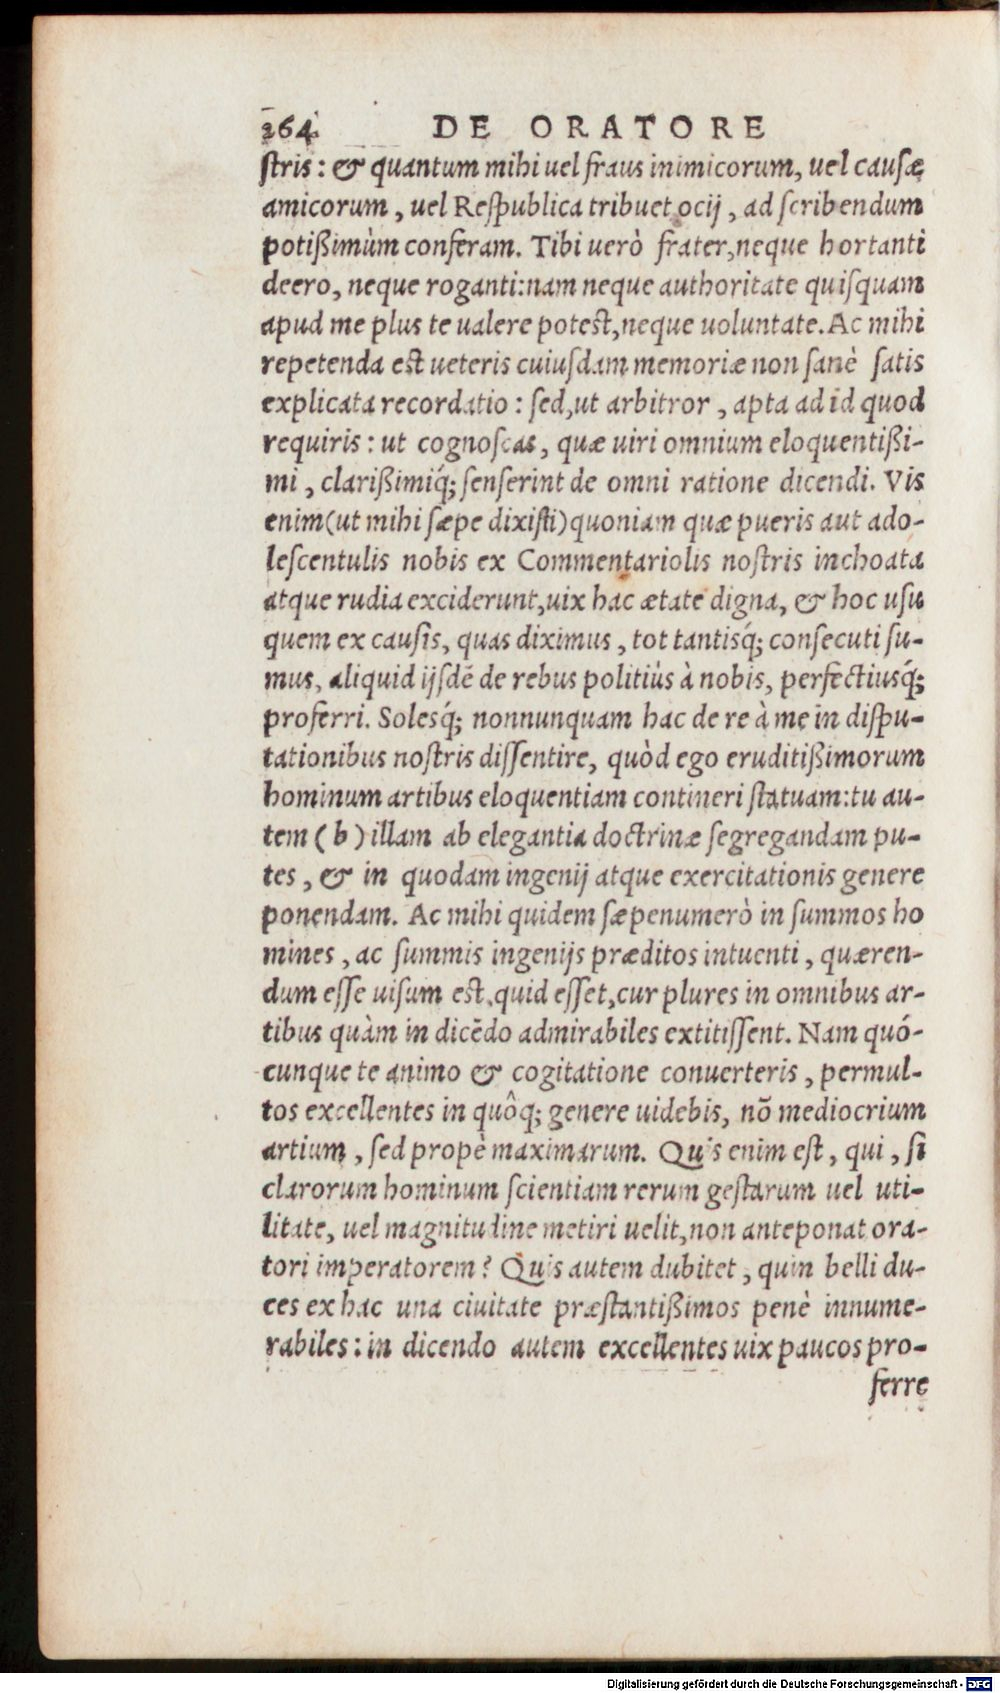 264 DE ORATORE
ſtris: & quantum mihi uel fraus inimicorum, uel cauſæ
amicorum, uel Reſpublica tribuet ocij, ad ſcribendum
potißimùm conferam. Tibi uerò frater, neque hortanti
deero, neque roganti: nam neque authoritate quiſquam
apud me plus te ualere poteſt, neque uoluntate. Ac mihi
repetenda eſt ueteris cuiuſdam memoriæ non ſanè ſatis
explicata recordatio: ſed, ut arbitror, apta ad id quod
requiris: ut cognoſcas, quæ uiri omnium eloquentißi-
mi, clarißimiq́; ſenſerint de omni ratione dicendi. Vis
enim (ut mihi ſæpe dixiſti) quoniam quæ pueris aut ado-
leſcentulis nobis ex Commentariolis noſtris inchoata
atque rudia exciderunt, uix hac ætate digna, & hoc uſu
quem ex cauſis, quas diximus, tot tantisq́; conſecuti ſu-
mus, aliquid ijſdē de rebus politiùs à nobis, perfectiusq́;
proferri. Solesq́; nonnunquam hac de re à me in diſpu-
tationibus noſtris diſſentire, quòd ego eruditißimorum
hominum artibus eloquentiam contineri ſtatuam: tu au-
tem (b) illam ab elegantia doctrinæ ſegregandam pu-
tes, & in quodam ingenij atque exercitationis genere
ponendam. Ac mihi quidem ſæpenumerò in ſummos ho
mines, ac ſummis ingenijs præditos intuenti, quæren-
dum eſſe uiſum eſt, quid eſſet, cur plures in omnibus ar-
tibus quàm in dicēdo admirabiles extitiſſent. Nam quó-
cunque te animo & cogitatione conuerteris, permul-
tos excellentes in quôq; genere uidebis, nō mediocrium
artium, ſed propè maximarum. Quis enim eſt, qui, ſi
clarorum hominum ſcientiam rerum geſtarum uel uti-
litate, uel magnitudine metiri uelit, non anteponat ora-
tori imperatorem? Quis autem dubitet, quin belli du-
ces ex hac una ciuitate præſtantißimos penè innume-
rabiles: in dicendo autem excellentes uix paucos pro-
ferre
Digitalisierung gefördert durch die Deutsche Forschungsgemeinschaft - DFG